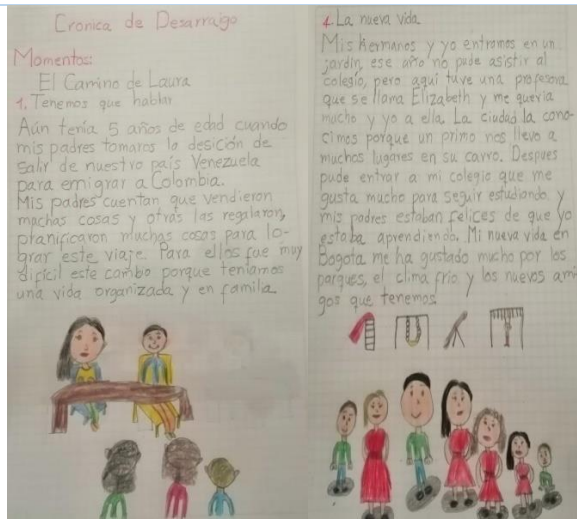 Cronica de Desarraigo
Momentos:
El Camino de Laura
1. Tenemos que hablar
Aún tenía 5 años de edad cuando
mis padres tomaron la desición de
salir de nuestro país Venezuela
para emigrar a Colombia.
Mis padres cuentan que vendieron
machas cosas y otras las regalaron,
pranificaron muchas cosas para lo-
grar este viaje. Para ellos fue muy
difícil este cambo porque teníamos
una vida organizada y en familia
4. La nueva vida
Mis hermanos y yo entramos en un
jardín, ese año no pude asistir al
colegio, pero aquí tuve una profesora
que se llama Elizabeth y me quería
mucho y yo a ella. La ciudad la cono-
cimos porque un primo nos llevo a
muchos lugares en su carro. Despues
pude entrar a mi colegio que me
gusta mucho para seguir estudiando, y
mis padres estaban felices de que yo
estaba aprendiendo. Mi nueva vida en
Bogota me ha gustado mucho por los
parques, el clima frío y los nuevos ami
gos que tenemos